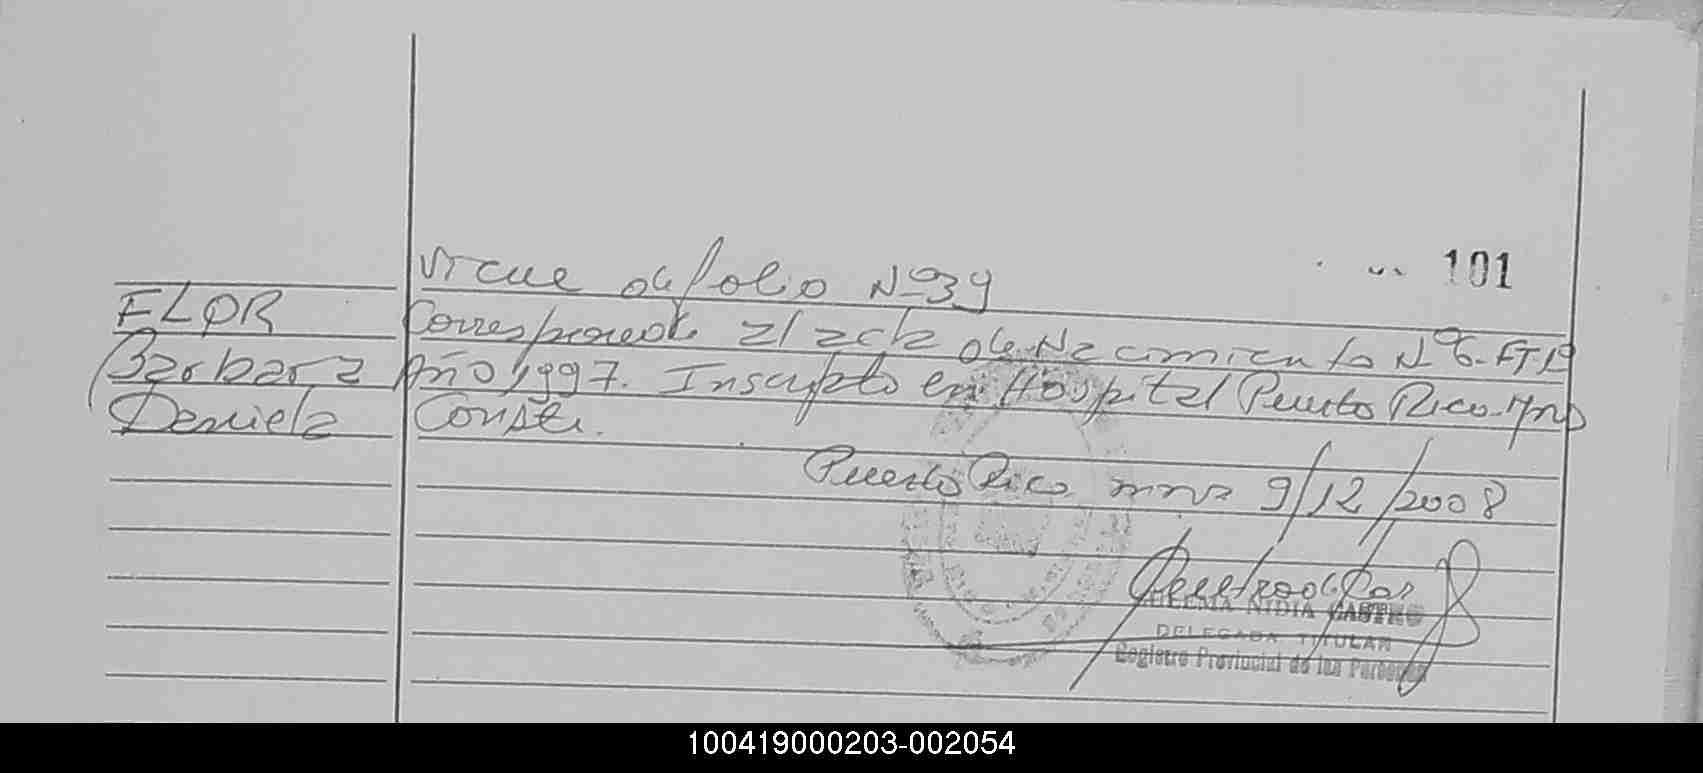 101
viene de folio Nº 39
FLOR Corresponde al acta de Nacimiento Nº 6-FTº
Barbara Año 1997. Inscripto en Hospital Puerto Rico. Mnes
Daniela Conste.
Puerto Rico mnes 9/12/2008
NIDIA CASTRO
DELEGADA TITULAR
Registro Provincial de las Personas
100419000203-002054